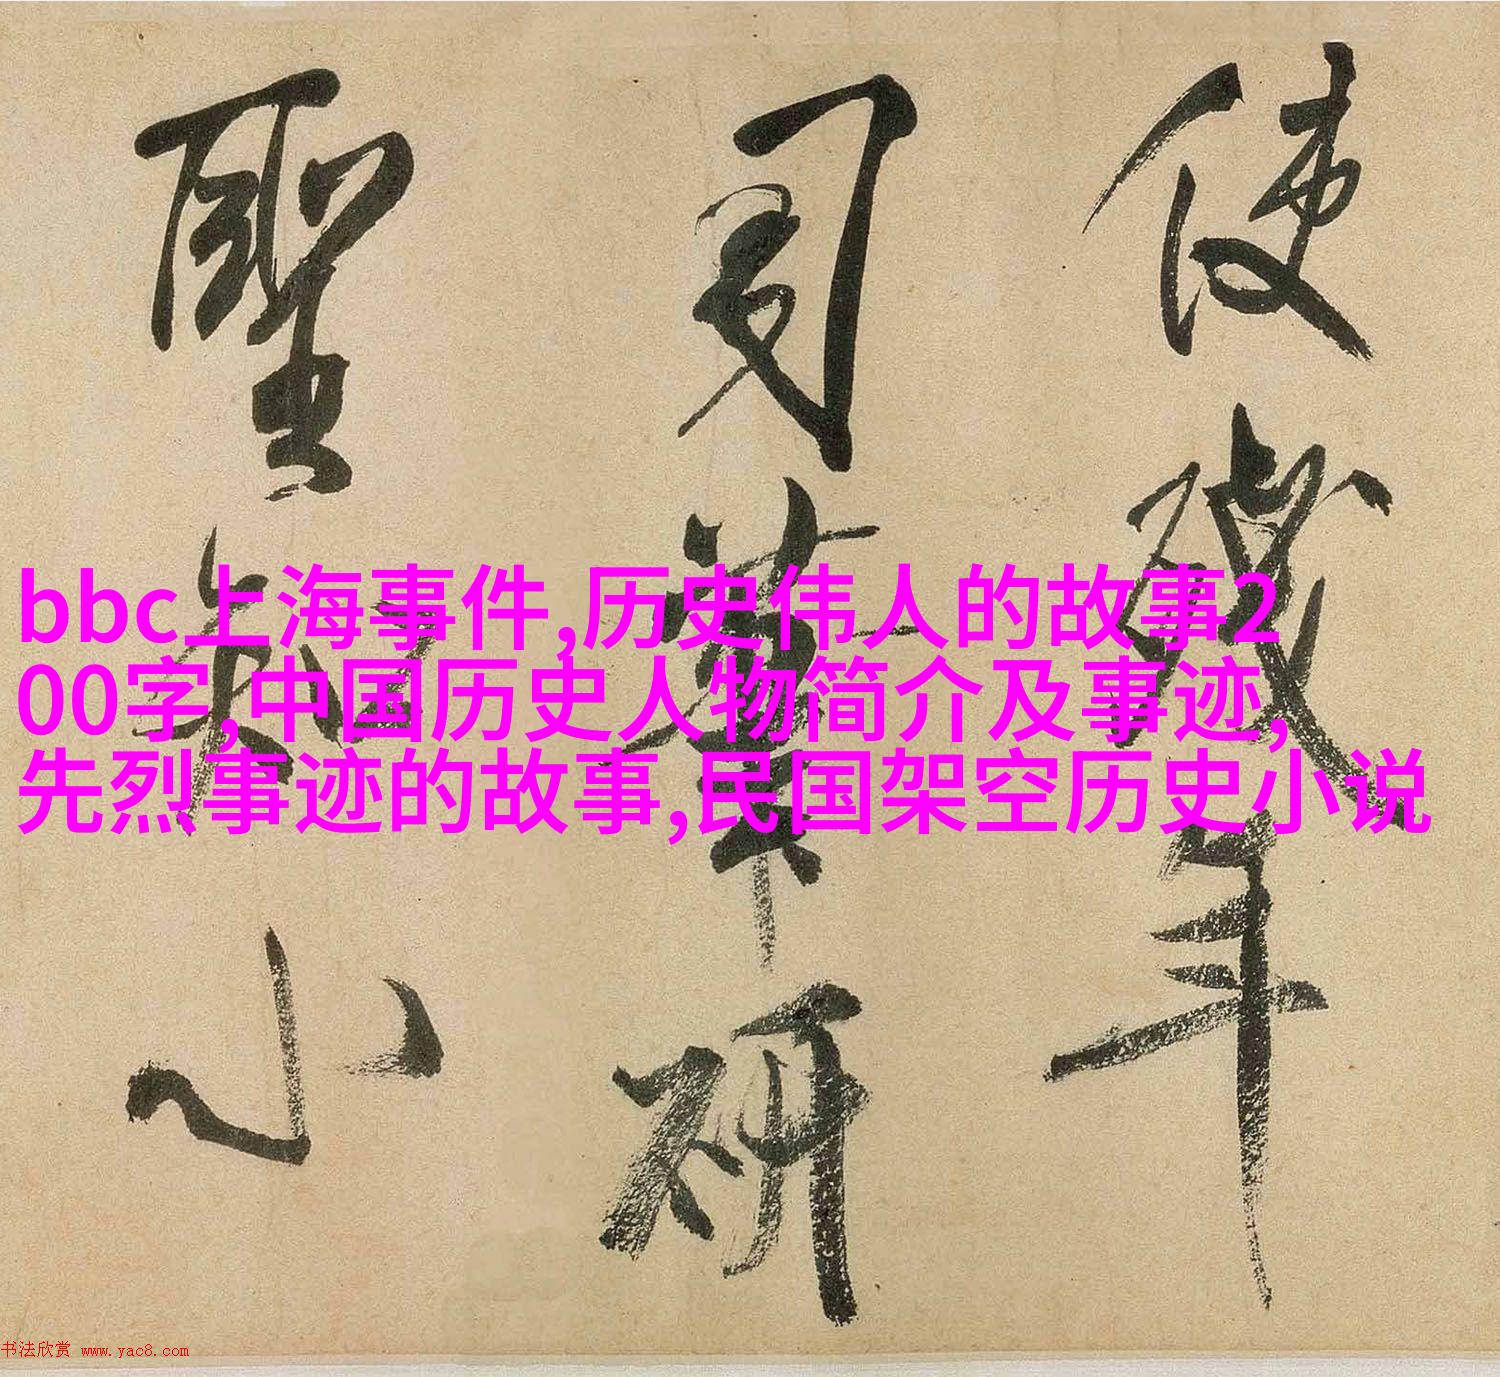 使殘年
司筆研
聖知小
bbc上海事件,历史伟人的故事2
00字,中国历史人物简介及事迹,
先烈事迹的故事,民国架空历史小说
书法欣赏 www.yac8.com